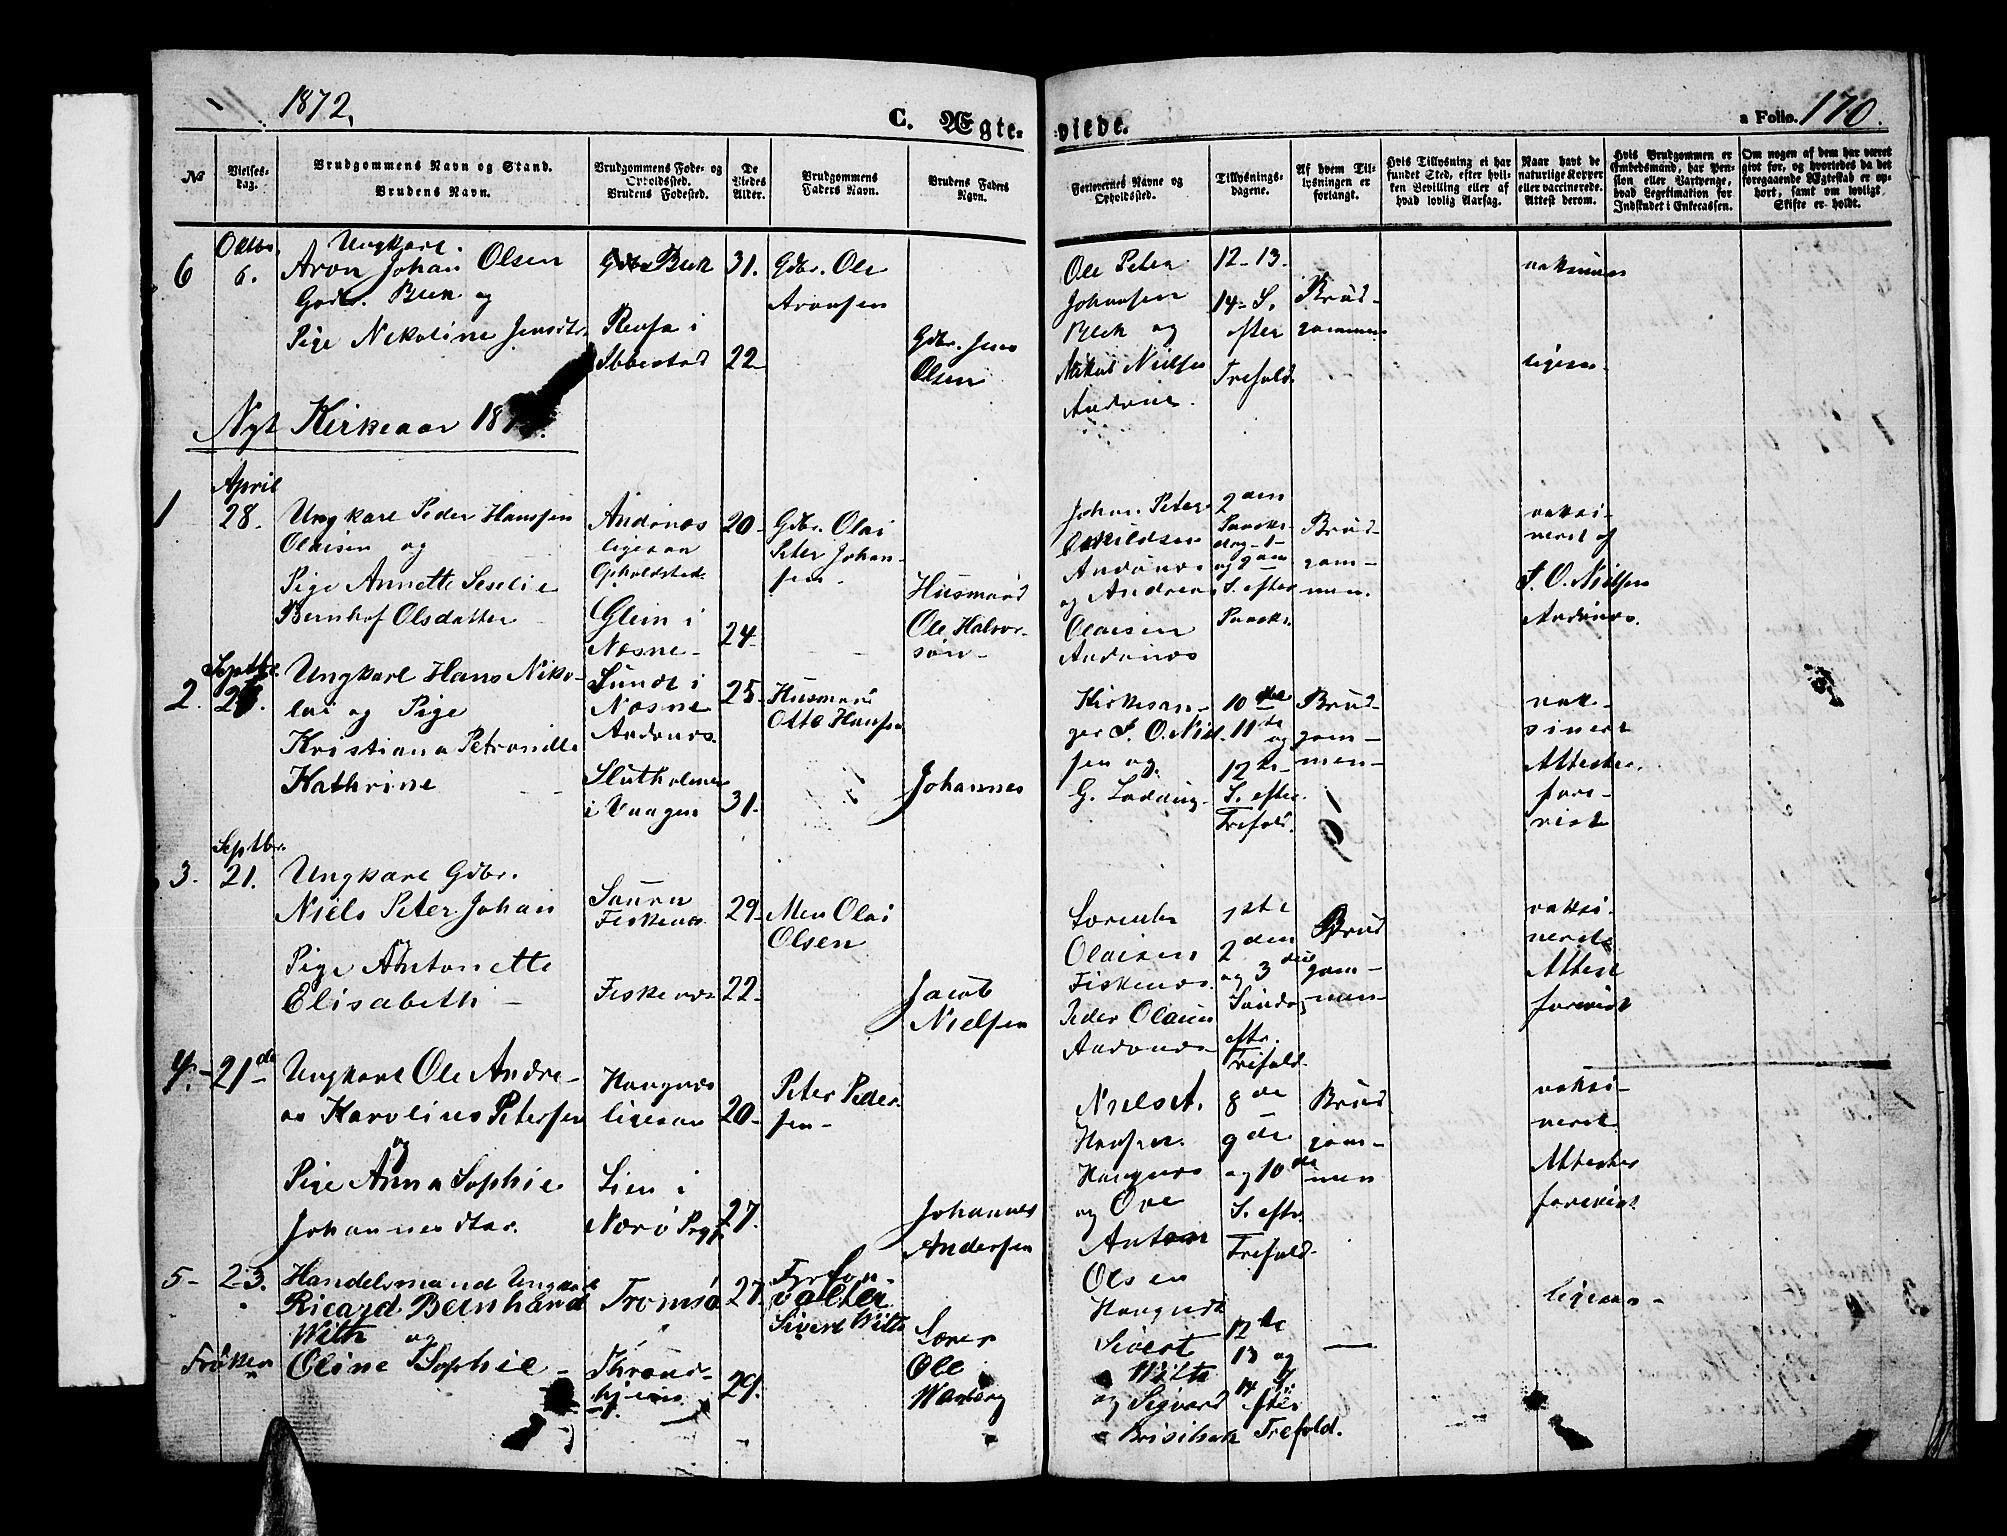 1872.
C. Ægte-
viede.
a Folio. 170.
No
Vielses-
dag.
Brudgommens Navn og Stand.
Brudens Navn.
Brudgommens Føde- og
Opholdssted.
Brudens Fødested.
De
Viedes
Alder.
Brudgommens
Faders Navn.
Brudens Faders
Navn.
Forlovernes Navne og
Opholdssted.
Tillysnings-
dagene.
Af hvem Til-
lysningen er
forlangt.
Hvis Tillysning ei har
fundet Sted, efter hvil-
ken Bevilling eller af
hvad lovlig Aarsag.
Naar havt de
naturlige Kopper
eller vaccinerede.
Attest derom.
Hvis Brudgommen er
Embedsmand, har Pen-
sion eller Vartpenge,
hvad Legitimation for
Indskudet i Enkecassen.
Om nogen af dem har været
givt for, og hvorledes da det
foregaaende Ægteskab er op-
hørt, samt om lovligt
Skifte er holdt.
6
Octbr.
6.
Ungkarl.
Aron Johan Olsen
Gdbr. Bek og
Pige Nikoline Jensdtr.
Bek
Revsa i
Ibbestad
31.
22
Gdbr. Ole
Aronsen
Gdbr. Jens
Olsen
Ole Peter
Johansen
Bek og
Nielsen
Andønes.
12-13.
14- S.
efter
Trefold.
Brud-
gommen
ligesaa
Nyt Kirkeaar 18
1
April
28.
Ungkarl Peder Hansen
Olaisen og
Pige Annette Seselie
Bernhof Olsdatter
Andønes
ligesaa
Opholdsted.
Glein i
Næsne
20
24
Gdbr. Olai
Peter Johan-
sen
Husmand
Ole Halvor-
søn
Johan Peter
Andønes
og Andreas
Olaisen
Andønes
2den
Paaske-
dag 1
og 2den
S. efter
Paaske.
Brud-
gom-
men.
vaksi-
neret af
J. O. Nielsen
Andønes.
2.
Septbr.
Ungkarl Hans Niko-
lai og Pige
Kristiana Petronille
Kathrine
Sund i
Næsne
Andønes.
Slutholmen
i Vaagen
25
31.
Husmand
Otto Hansen
Johannes
Kirkesan-
ger J. O. Niel-
sen og
G. Ladaug
10de
11te og
12te
S. efter
Trefold.
Brud-
gom-
men
vak-
sineret
Attester
fore-
vist
3.
Septbr.
21.
Ungkarl Gdbr.
Niels Peter Johan
og
Pige Antonette
Elisabeth
Fiskenes
Fiskenes
29
22
Olai
Olsen
Jacob
Nielsen
Lorents
Olaisen
Fiskenes.
Peder Olaisen
Andønes
1ste
2den
og 3die
Søndag
eftr.
Trefold.
Brud
gom-
men
vaksi-
neret
Attest
forevist
4.
21de
Ungkarl Ole Andre-
as Karolius Petersen
og
Pige Anna Sophie
Johannesdtar.
Haugnes
ligesaa
Lien i
Nærø Prgj.
20
27.
Peter Peder-
sen
Johannes
Andersen
Niels A.
Hansen
Haugnes
og Ove
Anton
Olsen
Haugnes
8de
9de
og 10de
S. eftr.
Trefold.
Brud
gom-
men
vaksi-
neret
Attester
forevist
5
23.
Handelsmand Ungkarl
Ricard Bernhard
With og
Frøken Oline Sophie
Tromsø
Thrond-
hjem
27
29.
Fyrfor-
valter
Sivert With
Ole
Sivert
With
og Sigvard
12te
13 og
14 S.
efter
Trefold.
ligesaa